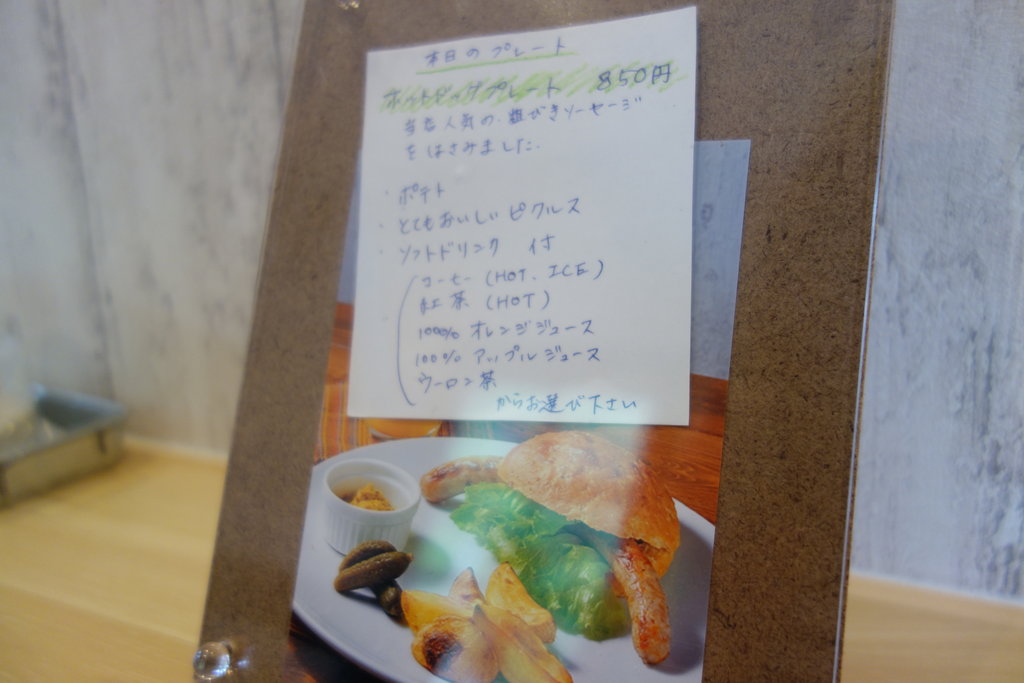 本日のプレート
ホットドッグプレート 850円
当店人気の、粗びきソーセージ
をはさみました。
・ポテト
・とてもおいしいピクルス
・ソフトドリンク 付
コーヒー (HOT、ICE)
紅茶 (HOT)
100% オレンジジュース
100% アップルジュース
ウーロン茶
からお選び下さい